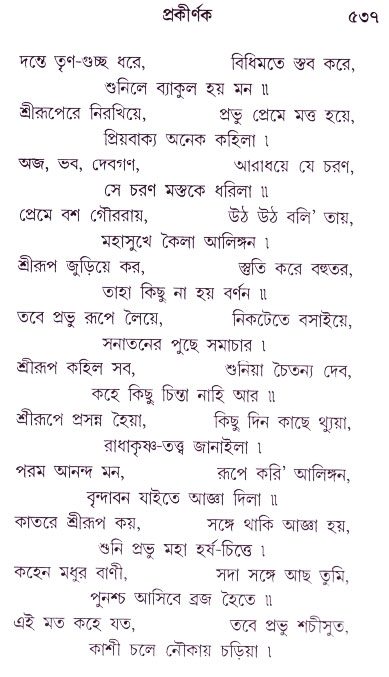 প্রকীর্ণক ৫৩৭
দন্তে তৃণ-গুচ্ছ ধরে, বিধিমতে স্তব করে,
শুনিলে ব্যাকুল হয় মন ॥
শ্রীরূপেরে নিরখিয়ে, প্রভু প্রেমে মত্ত হয়ে,
প্রিয়বাক্য অনেক কহিলা ।
অজ, ভব, দেবগণ, আরাধয়ে যে চরণ,
সে চরণ মস্তকে ধরিলা ॥
প্রেমে বশ গৌররায়, উঠ উঠ বলি’ তায়,
মহাসুখে কৈলা আলিঙ্গন ।
শ্রীরূপ জুড়িয়ে কর, স্তুতি করে বহুতর,
তাহা কিছু না হয় বর্ণন ॥
তবে প্রভু রূপে লৈয়ে, নিকটেতে বসাইয়ে,
সনাতনের পুছে সমাচার ।
শ্রীরূপ কহিল সব, শুনিয়া চৈতন্য দেব,
কহে কিছু চিন্তা নাহি আর ॥
শ্রীরূপে প্রসন্ন হৈয়া, কিছু দিন কাছে থুয়্যা,
রাধাকৃষ্ণ-তত্ত্ব জানাইলা ।
পরম আনন্দ মন, রূপে করি’ আলিঙ্গন,
বৃন্দাবন যাইতে আজ্ঞা দিলা ॥
কাতরে শ্রীরূপ কয়, সঙ্গে থাকি আজ্ঞা হয়,
শুনি প্রভু মহা হর্ষ-চিত্তে ।
কহেন মধুর বাণী, সদা সঙ্গে আছ তুমি,
পুনশ্চ আসিবে ব্রজ হৈতে ॥
এই মত কহে যত, তবে প্রভু শচীসুত,
কাশী চলে নৌকায় চড়িয়া ।